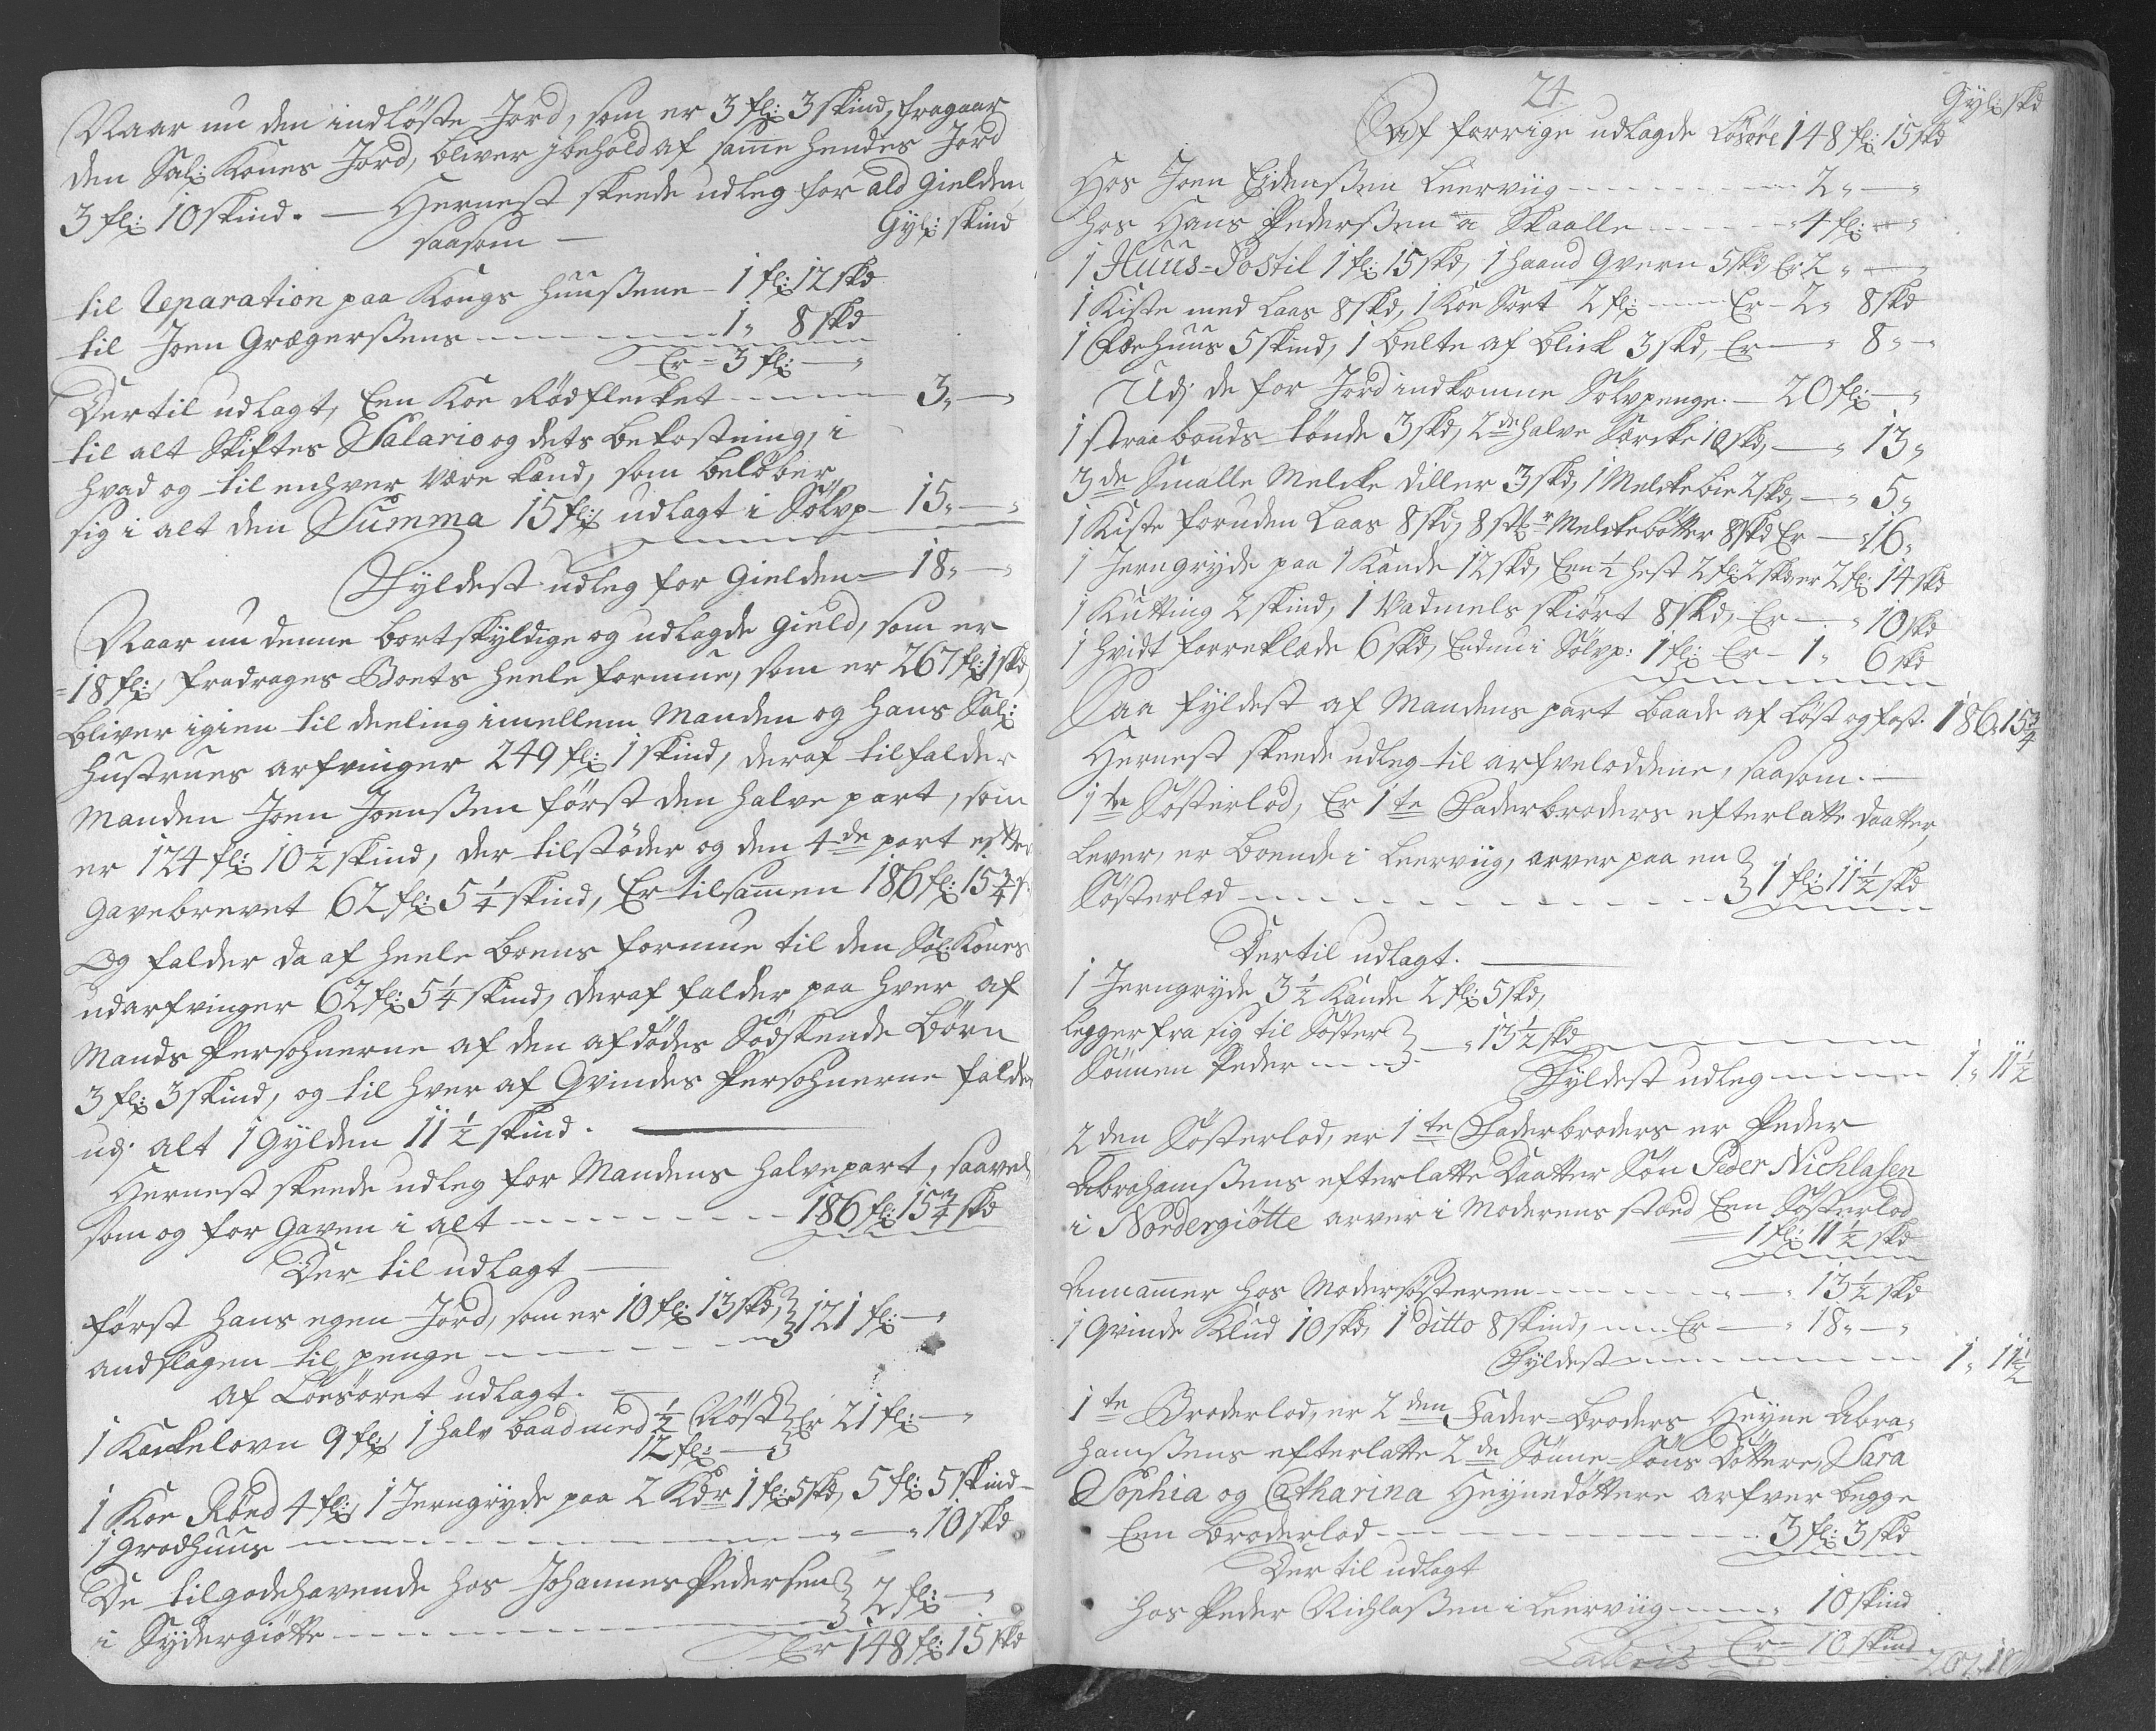 Naar nu den indløste Jord, som er 3 fl: 3 skind, fragaar
den Sal: Kones Jord, bliver jbehold af samme hendes Jord
3 fl: 10 skind. — Hernest skeede udleg for ald Gielden,
saasom — Gyl: skind
til Reparation paa Kongs Huußene — 1 fl: 12 skd
til Joen Grægerßens — 1 „ 8 skd
Er = 3 fl: — „
Dertil udlagt, Een Koe Rödflecket — 3 „ — „
til alt Skiftes Salario og dets bekostning, i
hvad og til enhver være kand, som beløber
sig i alt den Summa 15 fl: udlagt i Sölvp — 15 „ — „
Fyldest udleg for Gielden — 18 „ — „
Naar nu denne bortskyldige og udlagde gield, som er
18 fl:, fradrages Boets heele formue, som er 267 fl: 1 skd,
bliver igien til deeling imellem Manden og hans Sal:
Hustrues arfvinger 249 fl: 1 skind, deraf tilfalder
Manden Joen Joenßen först den halve part, som
er 124 fl: 10 1/2 skind, der tilstöder og den 4de part efter
Gavebrevet 62 fl: 5 1/4 skind, Er tilsamen 186 fl: 15 3/4 s.
Og falder da af heele boens formue til den Sal: Kones
udarfvinger 62 fl: 5 1/4 skind, deraf falder paa hver af
Mands Persohnerne af den afdödes Södskende Börn
3 fl: 3 skind, og til hver af Qvindes Persohnerne falder
udj alt 1 Gylden 11 1/2 skind. —
Hernest skeede udleg for Mandens halvepart, saavel
som og for Gaven i alt — 186 fl: 15 3/4 skd
Der til udlagt —
först hans egen Jord, som er 10 fl: 13 skd, 121 fl: — „
andslagen til penge —
af Löesöret udlagt. —
1 Kackelovn 9 fl:, 1 halv baad med 1/2 Er 21 fl: — „
12 fl: —
1 Koe Röed 4 fl:, 1 Jerngryde paa 2 Kdr 1 fl: 5 skd, 5 fl: 5 skind —
1 grodhuus — „ — „ 10 skd
De tilgodehavende hos Johannes Pedersen 2 fl: — „
i Sydergiötte —
Er 148 fl: 15 skd
24
Gyl: skd
Af forrige udlagde Lösöre 148 fl: 15 skd
Hos Joen Eidenßen Leerviig — 2 „ — „
hos Hans Pederßen a Skaalle — 4 fl: — „
1 Huus=Postil 1 fl: 15 skd, 1 haand Qvern 5 skd, Er 2 „ — „
1 Kiste med Laas 8 skd, 1 Koe Sort 2 fl: — Er — 2 „ 8 skd
1 Foehuus 5 skind, 1 Belte af Blick 3 skd, Er — „ 8 „ — „
Udj de for Jord indkomne Sölvpenge. — 20 fl: — „
1 straabonds tönde 3 skd, 2de halve Særcke 10 skd, — „ 13 „
3de Smalle Melcke diller 3 skd, 1 Melckebie 2 skd, — „ 5 „
1 Kiste foruden Laas 8 skd, 8 stkr Melckebötter 8 skd Er — „ 16 „
1 Jerngryde paa 1 Kande 12 skd, Een 1/2 hest 2 fl: 2 skd, er 2 fl: 14 skd
1 Kutting 2 skind, 1 Vadmels skiört 8 skd, Er — „ 10 skd
1 hvidt forreklæde 6 skd, Endnu i Sölvp: 1 fl: Er — 1 „ 6 skd
Saa fyldest af Mandens part baade af löst og fast. 186 „ 15 3/4
Hernest skeede udleg til arfveloddene, saasom. —
1te Söster lod, Er 1te Faderbroders efterlatte daatter,
lever, er boende i Leerviig, arver paa en
Sösterlod — 1 fl: 11 1/2 skd
Dertil udlagt. —
1 Jerngryde 3 1/2 Kande 2 fl: 5 skd,
legger fra sig til Söster
Sönnen Peder — „ 13 1/2 skd
Fyldest udleg — 1 „ 11 1/2
2den Sösterlod, er 1te Faderbroders er Peder
Abrahamßens efterlatte Daatter Sön Peder Nichlasen
i Nordergiötte arver i Moderens stæd Een Sösterlod
— 1 fl: 11 1/2 skd
Annamer hos Modersösteren — „ 13 1/2 skd
1 Qvinde Klud 10 skd, 1 ditto 8 skind, — Er — „ 18 „ — „
Fyldest — 1 „ 11 1/2
1te Broderlod, er 2den Fader=broders Heyne Abra=
hamßens efterlatte 2de Sönne=Söns döttere, Sara
Sophia og Catharina Heynedöttere arfver begge
Een broderlod — 3 fl: 3 skd
Der til udlagt
hos Peder Nichlaßen i Leerviig — „ 10 skind
Er = 10 skind
Lateris